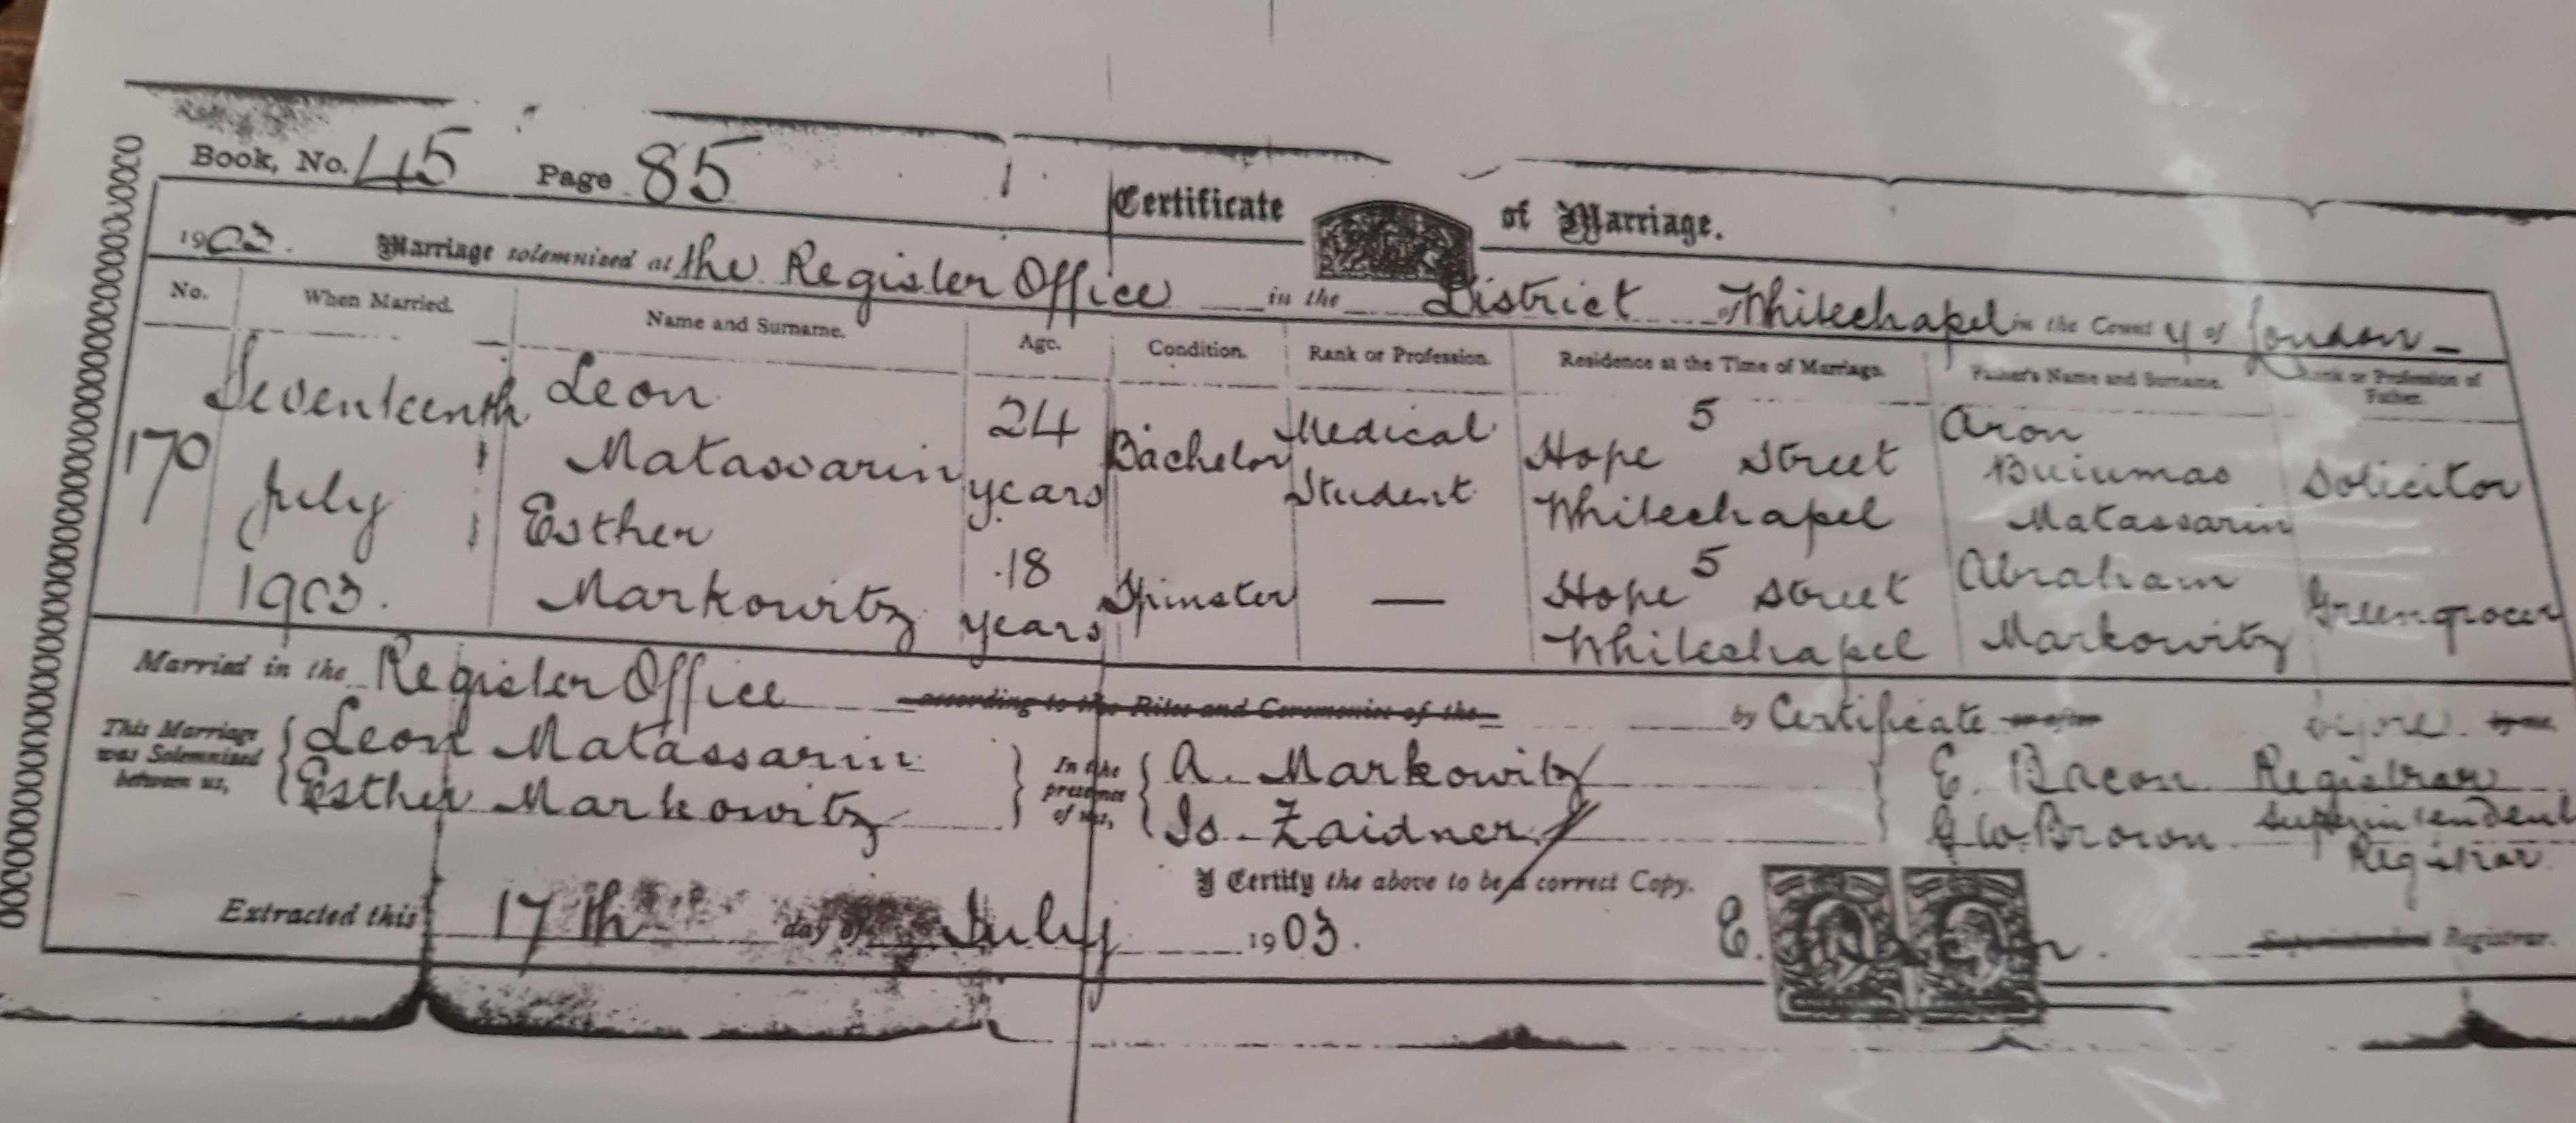 Book, No. 45 Page 85
Certificate of Marriage.
1903. Marriage solemnized at the Register Office in the District of Whitechapel in the County of London
No. When Married. Name and Surname. Age. Condition. Rank or Profession. Residence at the Time of Marriage. Father's Name and Surname. Rank or Profession of Father.
170 Seventeenth July 1903. Leon Matassarin 24 years Bachelor Medical Student 5 Hope Street Whitechapel Aron Buiumas Matassarin Solicitor
Esther Markowitz 18 years Spinster — 5 Hope Street Whitechapel Abraham Markowitz Greengrocer
Married in the Register Office according to the Rites and Ceremonies of the by Certificate before
This Marriage was Solemnized between us, Leon Matassarin Esther Markowitz
In the presence of us, A. Markowitz Is. Zaidner
E. Bacon Registrar
G W Brown Superintendent Registrar
I Certify the above to be a correct Copy.
Extracted this 17th day of July 1903. E. Superintendent Registrar.